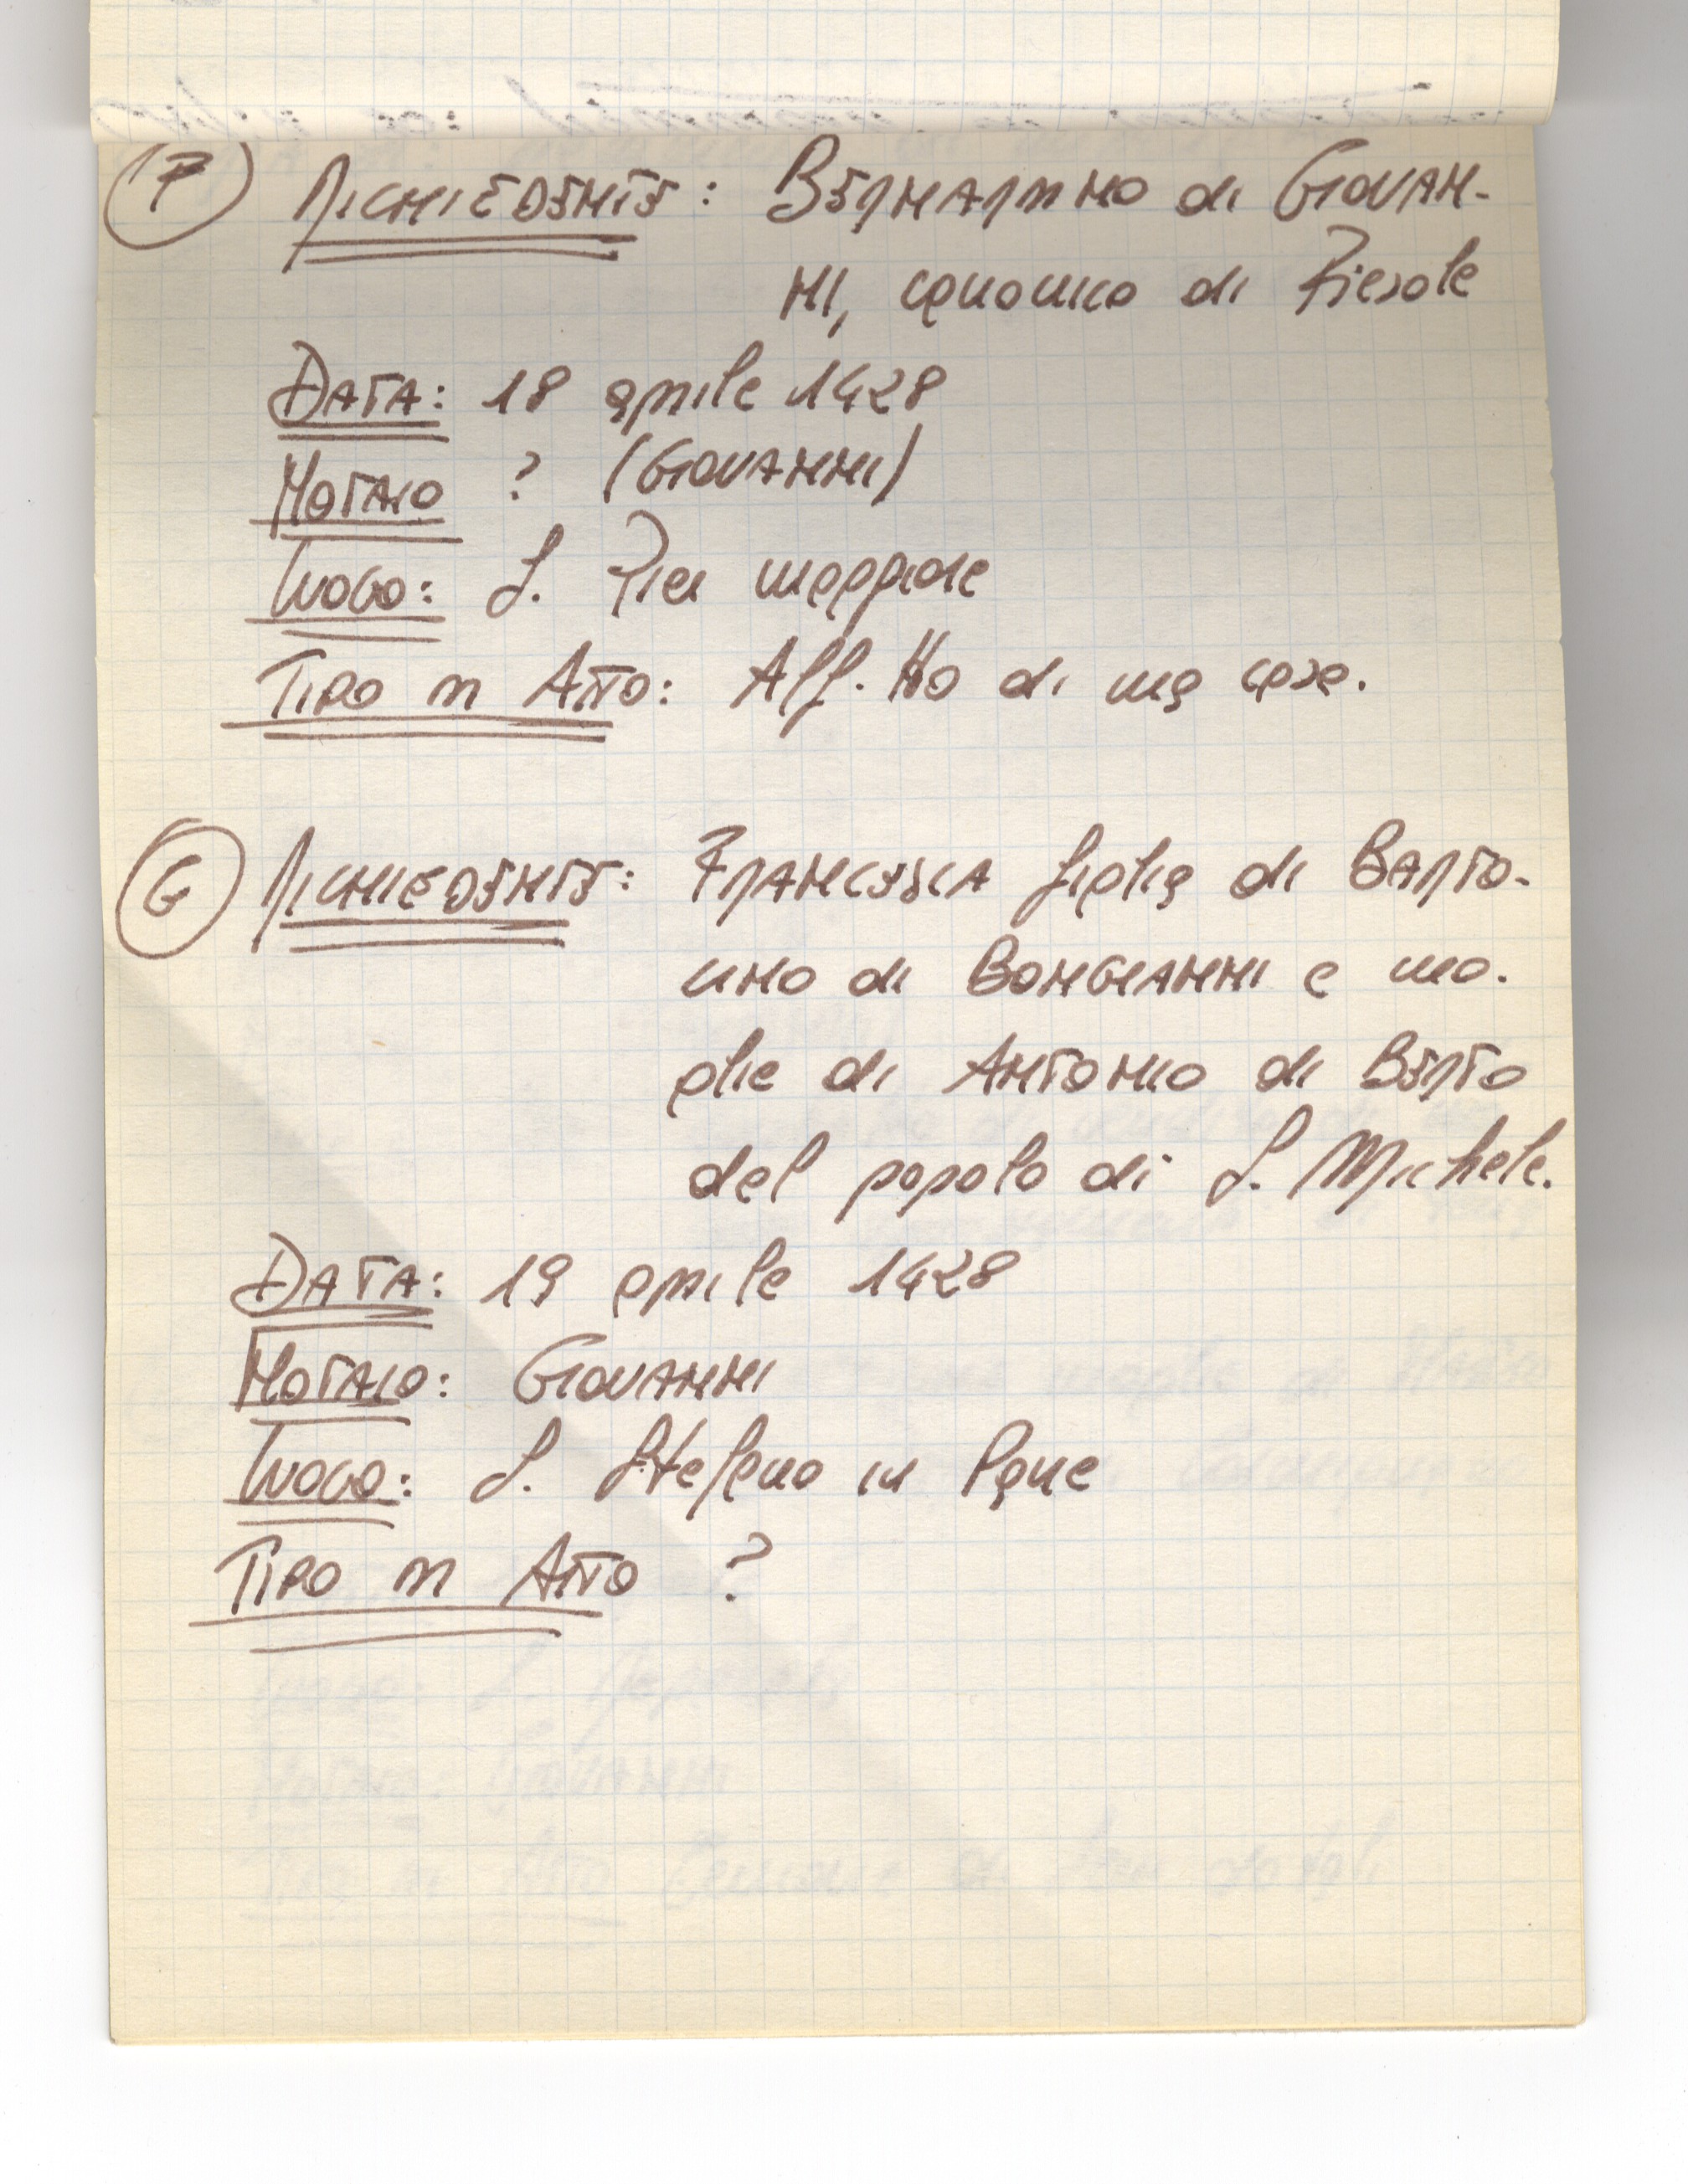 F RICHIEDENTE: BERNARDINO di GIOVAN-
NI, canonico di Fiesole
DATA: 18 aprile 1428
NOTAIO ? (GIOVANNI)
LUOGO: S. Pier maggiore
TIPO DI ATTO: Aff.tto di una casa.
G RICHIEDENTE: FRANCESCA figlia di BARTO-
LINO di BONGIANNI e mo-
glie di ANTONIO di BERTO
del popolo di S. Michele.
DATA: 19 aprile 1428
NOTAIO: GIOVANNI
LUOGO: S. Stefano in Pane
TIPO DI ATTO ?